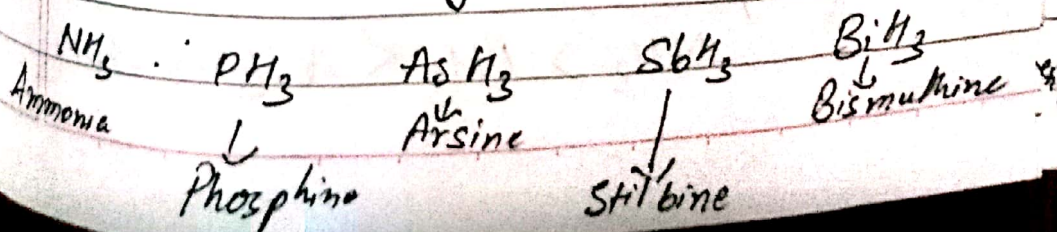 NH3 : PH3 AsH3 SbH3 BiH3
Ammonia ↓ Phosphine ↓ Arsine Stilbine ↓ Bismuthine